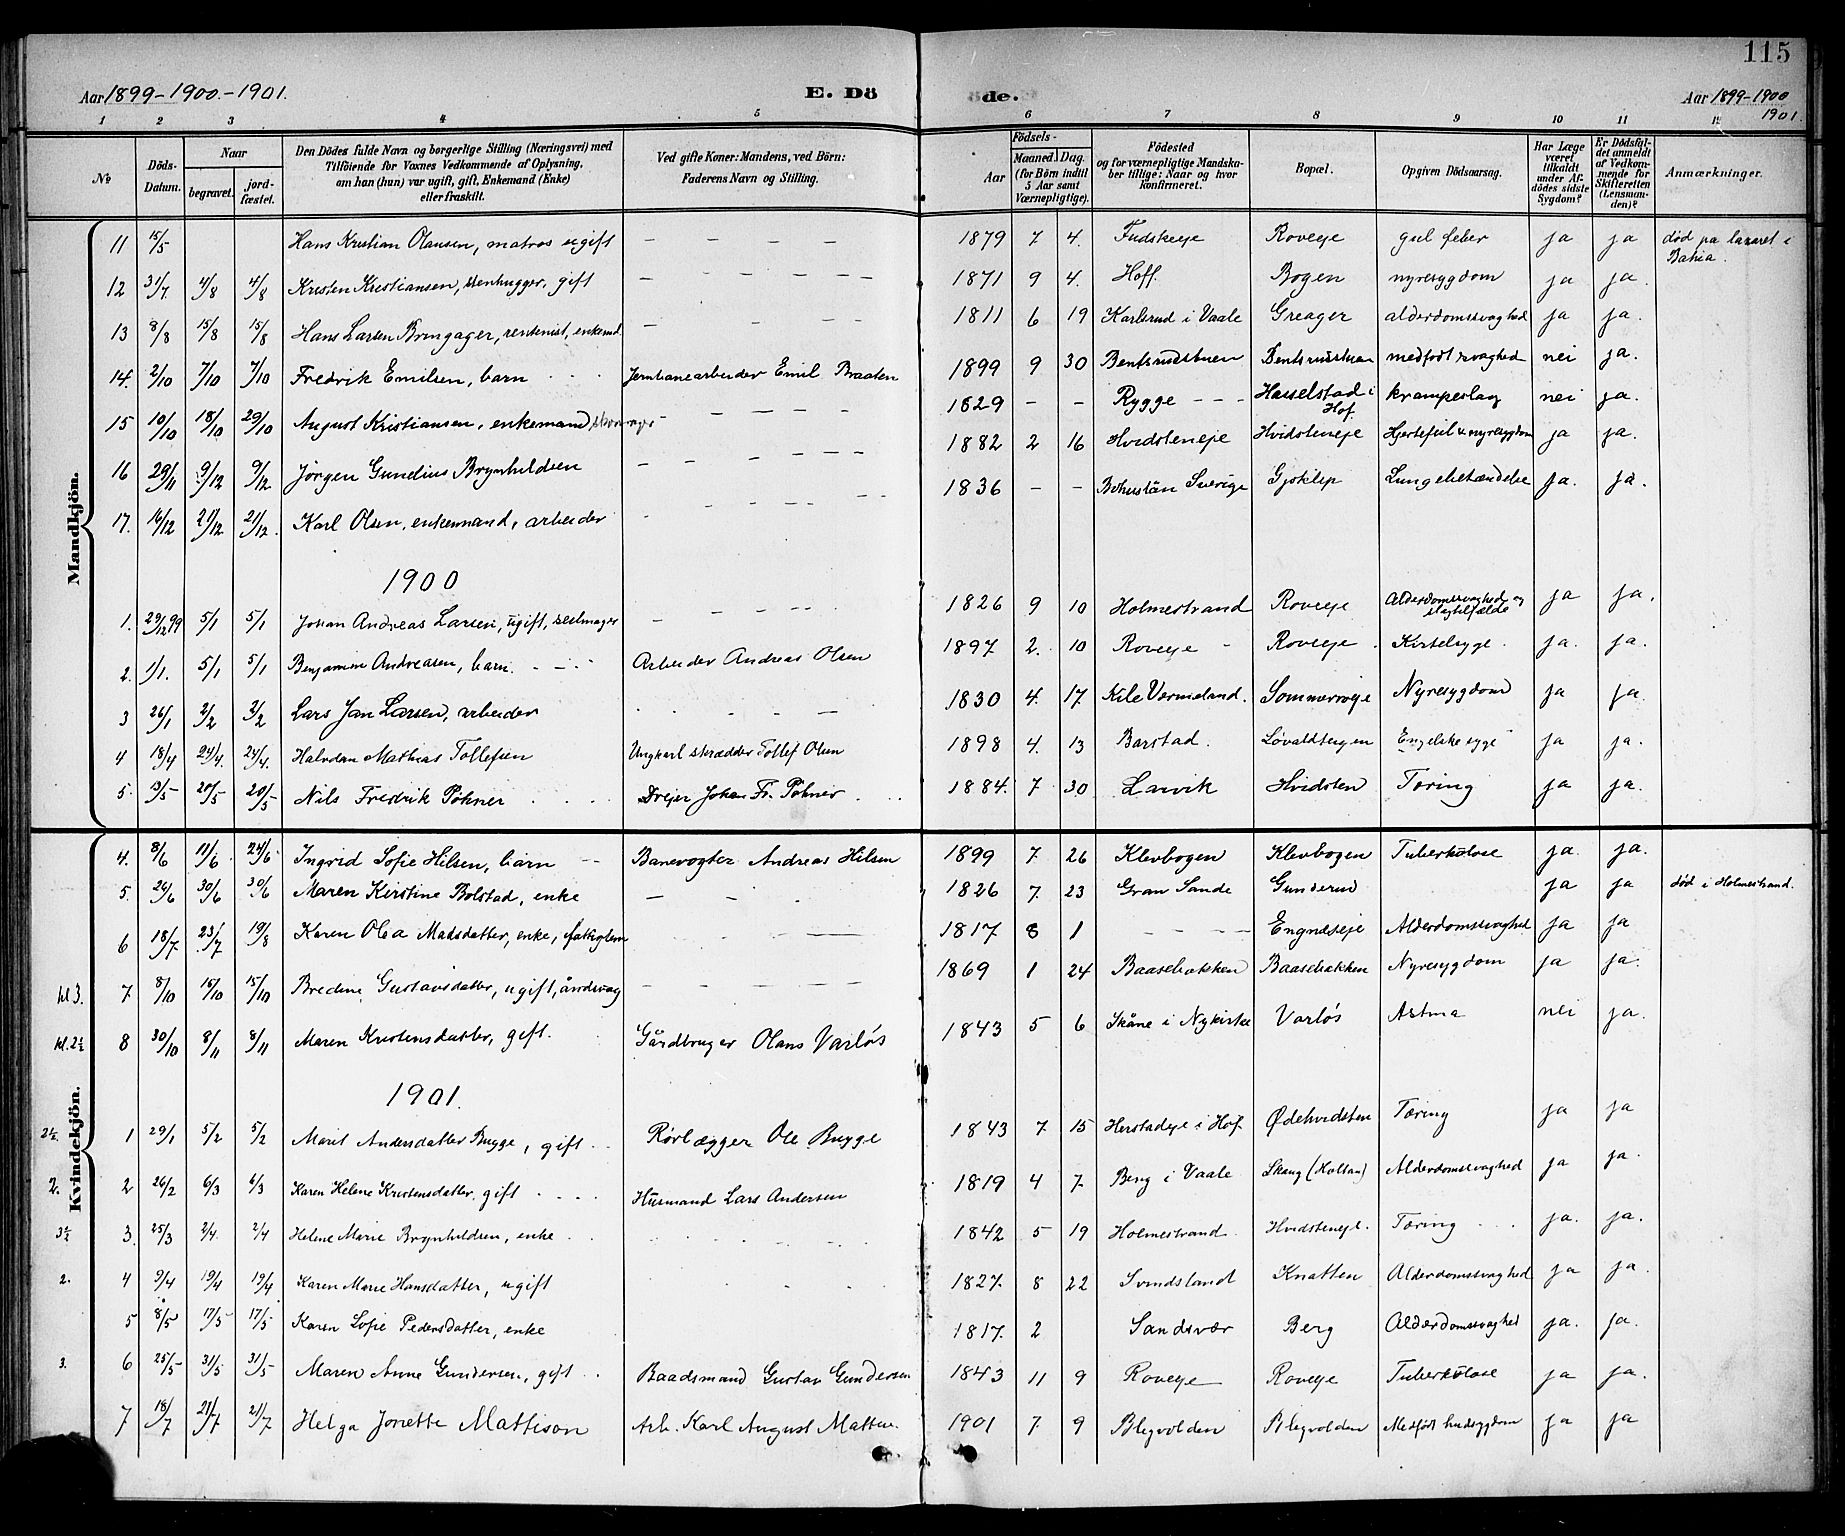 115
Aar 1899-1900.-1901. E. Dö de. Aar 1899-1900 1901.
1 2 3 4 5 6 7 8 9 10 11 12
№ Döds-Datum. Naar begravet. jord-fæstet. Den Dödes fulde Navn og borgerlige Stilling (Næringsvei) med Tilföiende for Voxnes Vedkommende af Oplysning, om han (hun) var ugift, gift, Enkemand (Enke) eller fraskilt. Ved gifte Koner: Mandens, ved Börn: Faderens Navn og Stilling. Födsels- Aar Maaned. Dag. (for Börn indtil 5 Aar samt Værnepligtige). Födested og for værnepligtige Mandska-ber tillige: Naar og hvor konfirmeret. Bopæl. Opgiven Dödsaarsag. Har Læge været tilkaldt under Af-dödes sidste Sygdom? Er Dödsfal-det anmeldt af Vedkom-mende for Skifteretten (Lensman-den)? Anmærkninger.
Mandkjön.
11 15/5 Hans Kristian Olausen, matros ugift — — — — 1879 7 4. Fudskeje Roveje gul feber ja ja død pa lazaret i Bahia.
12 31/7 4/8 4/8 Kristen Kristiansen, stenhugger, gift — — — — — 1871 9 4. Hoff. Bogen nyresygdom ja ja.
13 8/8 15/8 15/8 Hans Larsen Bringager, rentenist, enkemd — — — — 1811 6 19 Karlsrud i Vaale Greager alderdomssvaghed ja ja.
14. 2/10 7/10 7/10 Fredrik Emilsen, barn Jernbanearbeider Emil Braaten 1899 9 30 Bentsrudstuen Bentsrudstuen medfødt svaghed nei ja.
15 10/10 18/10 29/10 August Kristiansen, enkemand, - — — — — 1829 — — Rygge — — — Hasselstad i Hof. krampeslag nei ja.
16 29/11 9/12 9/12 Jørgen Gundius Brynhildsen — — — — — 1882 2 16 Hvidsteneje Hvidsteneje Hjertefeil & nyresygdom ja ja.
17. 16/12 21/12 21/12. Karl Olsen, enkemand, arbeider - - - - — — 1836 — — Bohuslän Sverige Gjøklep Lungebetændelse ja. ja.
1900
1. 29/12 99 5/1 5/1 Johan Andreas Larsen, ugift, seilmager — — — — — 1826 9 10 Holmestrand Roveje Alderdomssvaghed og slagtilfælde ja ja.
2. 1/1. 5/1 5/1 Benjamin Andreasen, barn. Arbeider Andreas Olsen 1897 2. 10 Roveje Roveje. Kirtelsyge. ja. ja.
3 26/1 2/2 2/2 Lars Jan Larsen, arbeider 1830 4. 17. Kile Vermeland. Sommerroeje Nyresygdom ja ja.
4 18/4 24/4. 24/4. Halvdan Mathias Tollefsen Ungkarl skrædder Tollef Olsen 1898 4. 13 Barstad. Løvaldbergen Engelske syge ja ja.
5. 13/5 20/5 20/5 Nils Fredrik Pöhner Drejer Johan Fr. Pöhner 1884. 7 30 Larvik Hvidsten Tæring ja ja
Kvindekjön.
4. 8/6 11/6 24/6 Ingrid Sofie Hilsen, barn Banevogter Andreas Hilsen 1899 7. 26 Klevbogen Klevbogen Tuberkulose ja. ja.
5. 24/6 30/6 30/6 Maren Kirstine Bolstad, enke — - 1826 7. 23 Gran Sande Gunderud ja ja død i Holmestrand.
6 18/7. 23/7 19/8 Karen Olea Madsdatter, enke, fattiglem 1817 8 1 - - - - Engnæseje Alderdomssvaghed ja ja
kl 3. 7 8/10 15/10 15/10 Bredine Gustavsdatter, ugift, åndsvag — — — — — 1869 1 24 Baasebakken Baasebakken Nyresygdom ja ja.
kl. 2½ 8 30/10 8/11 8/11 Maren Kristensdatter, gift. Gårdbruger Olaus Varløs 1843 5 6 Skåne i Nykirke Varløs Astma nei ja.
1901.
2½. 1 29/1 5/2 5/2 Marit Andersdatter Bugge, gift Rørlægger Ole Bugge 1843 7. 15 Herstadeje i Hof. Ødehvidsten Tæring ja ja
2. 2 26/2 6/3 6/3 Karen Helene Kristensdatter, gift Husmand Lars Andersen 1819 4 7. Berg i Vaale Skaug (Holtan) Alderdomssvaghed ja ja.
3½ 3. 25/3 2/4. 2/4 Helene Marie Brynhildsen, enke 1842 5 19 Holmestrand. Hvidsteneje. Tæring ja. ja.
2. 4 9/4 19/4 19/4 Karen Marie Hansdatter, ugift 1827. 8 22 Svindsland Knatten Alderdomssvaghed ja ja.
5 8/5 17/5 17/5 Karen Sofie Pedersdatter, enke 1817. 2 Sandsvær Berg Alderdomssvaghed ja. ja.
3. 6 25/5 31/5 31/5 Maren Anne Gundersen, gift Baadsmand Gustav Gundersen 1843 11 9 Roveje Roveje Tuberkulose ja ja.
7 18/7 21/7 21/7 Helga Jonette Mattison Arb. Karl August Mattu. 1901 7 9 Blegvolden Blegvolden Medfødt hudsygdom ja ja